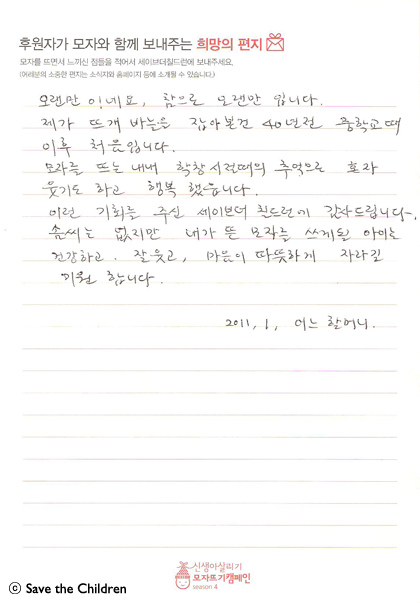 후원자가 모자와 함께 보내주는 희망의 편지
모자를 뜨면서 느끼신 점들을 적어서 세이브더칠드런에 보내주세요.
(여러분의 소중한 편지는 소식지와 홈페이지 등에 소개될 수 있습니다.)
오랜만 이네요, 참으로 오랜만 입니다.
제가 뜨개 바늘을 잡아본건 40년전 중학교때
이후 처음입니다.
모자를 뜨는 내내 학창시절때의 추억으로 혼자
웃기도 하고 행복 했습니다.
이런 기회를 주신 세이브더 칠드런에 감사드립니다.
솜씨는 없지만 내가 뜬 모자를 쓰게될 아이는
건강하고. 잘웃고, 마음이 따뜻하게 자라길
기원 합니다.
2011, 1, 어느 할머니.
신생아살리기
모자뜨기캠페인
season 4
ⓒ Save the Children